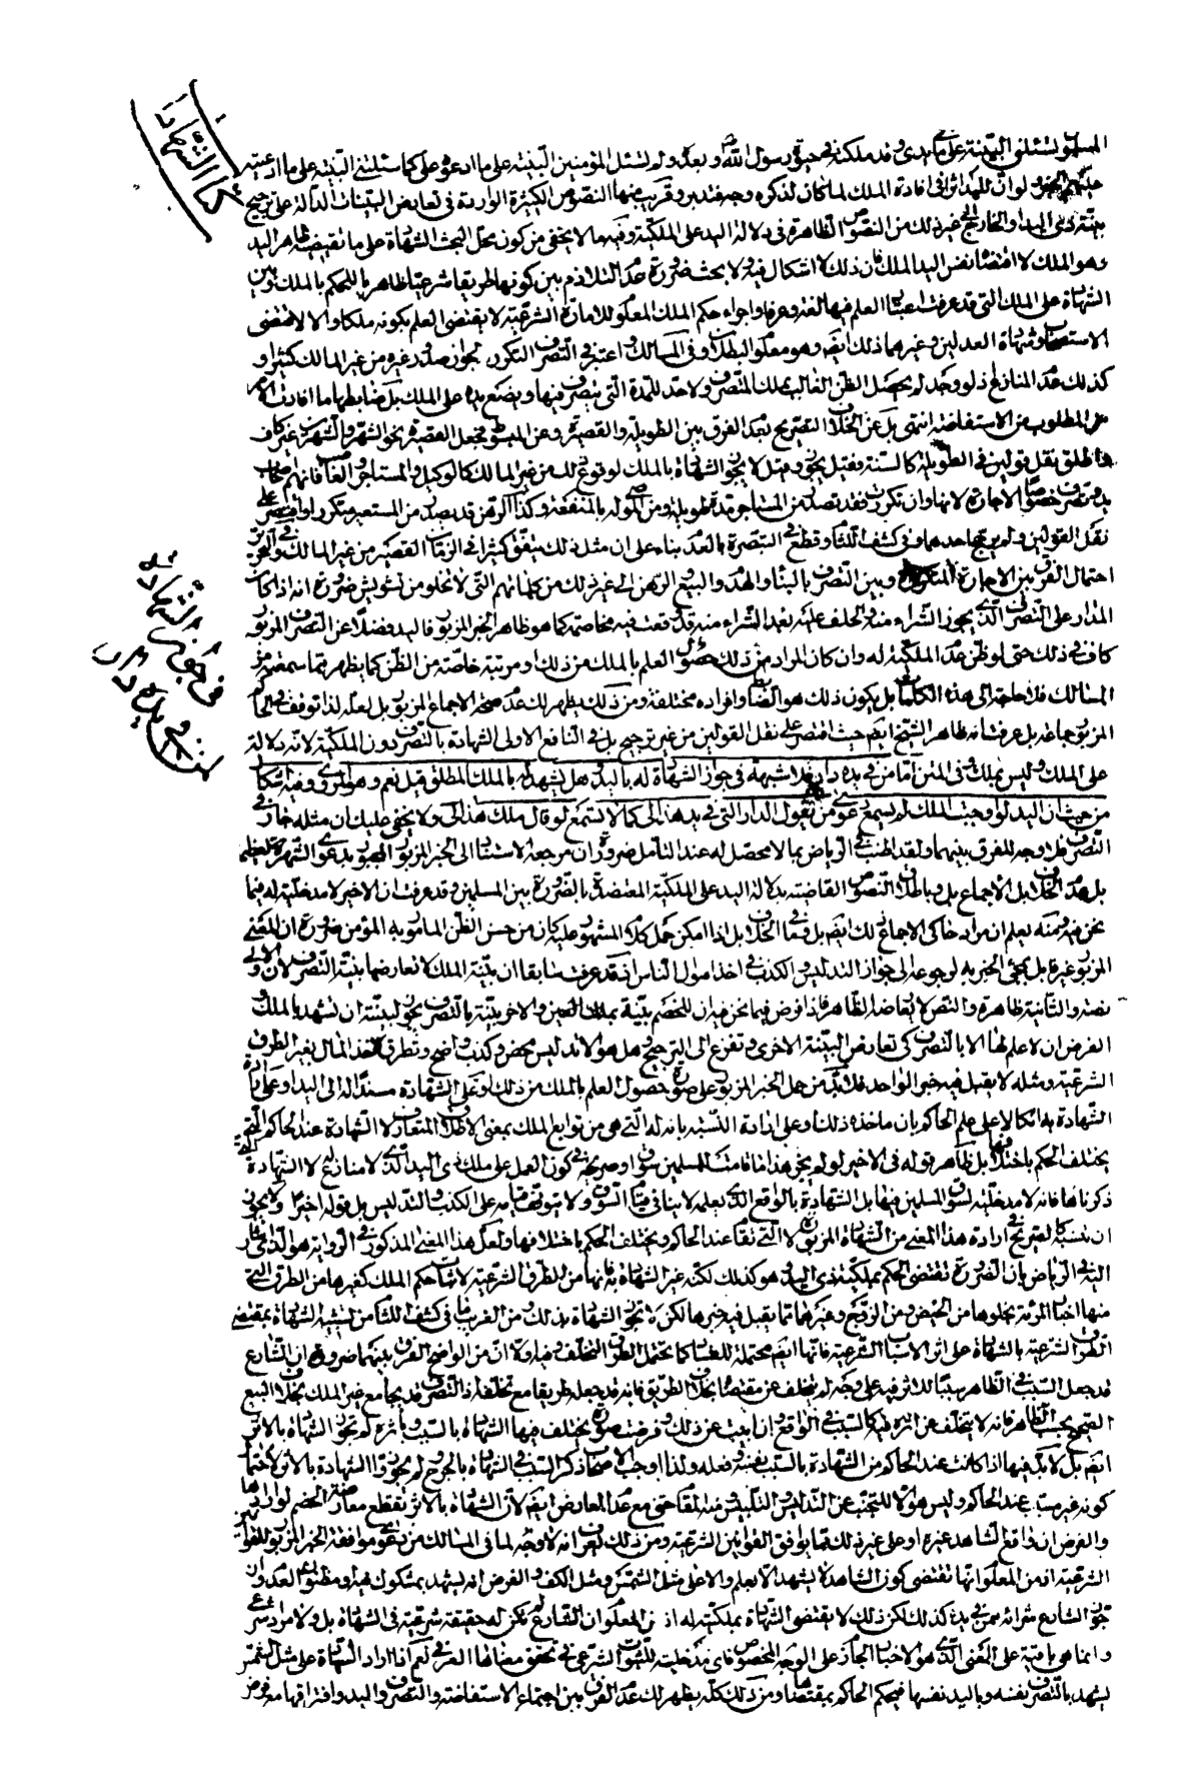 كتاب الشهادة
المسلمون تسئلني البينة على ما في يدي وقد ملكته في حيوة رسول الله ص وبعده ولم تسئل المؤمنين البينة على ما ادعوه علي كما سئلتني البينة على ما ادعيته
عليهم الخبر لو ان للهذا اثرا في افادة الملك لما كان لذكره وجه فتدبر وقريب منها النصوص الكثيرة الواردة في تعارض البينات الدالة على ترجيح
بينة ذي اليد او الخارج الى غير ذلك من النصوص الظاهرة في دلالة اليد على الملكية وفيه ما لا يخفى من كون محل البحث الشهادة على ما تقتضيه ظاهر اليد
وهو الملك لا اقتضاء نفس اليد الملك فان ذلك لا اشكال فيه ولا بحث ضرورة عدم التلازم بين كونها طريقا شرعيا ظاهريا للحكم بالملك وبين
الشهادة على الملك التي قد عرفت اعتبار العلم فيها لغة وعرفا واجراء حكم الملك المعلوم للامارة الشرعية لا يقتضي العلم بكونه ملكا والا لاقتضى
الاستصحاب وشهادة العدلين وغيرهما ذلك ايضا وهو معلوم البطلان وفي المسالك واعتبر في التصرف التكرر لجواز صدور غيره من غير المالك كثيرا و
كذلك عدم المنازع اذ لو وجد لم يحصل الظن الغالب بملك المتصرف ولا حد للمدة التي يتصرف فيها ويضع يده على الملك بل ضابطها ما افادت الامر
المطلوب من الاستفاضة انتهى بل عن الخلاف التصريح بعدم الفرق بين الطويلة والقصيرة وعن المبسوط فجعل القصيرة نحو الشهر والشهرين غير كاف
واطلق نقل قولين في الطويلة كالسنة فقيل يجوز وقيل لا يجوز الشهادة بالملك لوقوع ذلك من غير المالك كالوكيل والمستاجر والغاصب فانهم اصحاب
يد وتصرف خصوصا الاجارة لانها وان تكررت فقد تصدر من المستاجر مدة طويلة ومن الموصى له بالمنفعة وكذا الرهن قد يصدر من المستعير متكررا واقتصر على
نقل القولين ولم يرجح احدهما وفي كشف اللثام وقطع في التبصرة بالعدم بناء على ان مثل ذلك يتفق كثيرا في الزمان القصير من غير المالك ونحوه في التحرير
احتمال الفرق بين الاجارة المتكررة وبين التصرف بالبناء والهدم والبيع والرهن الى غير ذلك من كلماتهم التي لا تخلو من تشويش ضرورة انه اذا كان
المدار على التصرف الذي يجوز الشراء منه والحلف عليه بعد الشراء منه قد وقعت فيه مخاصمة كما هو ظاهر الخبر المزبور فاليد فضلا عن التصرف المزبور
كاف في ذلك حتى لو ظن عدم الملكية له وان كان المراد من ذلك حصول العلم بالملك من ذلك او مرتبة خاصة من الظن كما يظهر مما سمعته من
المسالك فلا حاجة الى هذه الكلمات بل يكون ذلك هو الضابط وافراده مختلفة ومن ذلك يظهر لك عدم صحة الاجماع المزبور بل لعله لذا توقف في الحكم
المزبور جماعة بل عرفت انه ظاهر الشيخ ايضا حيث اقتصر على نقل القولين من غير ترجيح بل في النافع الاولى الشهادة بالتصرف دون الملكية لانه دلالة
على الملك وليس بملك وفي المتن اما من في يده دار فلا شبهة في جواز الشهادة له باليد وهل يشهد له بالملك المطلق قيل نعم وهو المروي وفيه اشكال
من حيث ان اليد لو اوجبت الملك لم تسمع دعوى من يقول الدار التي في يد هذا لي كما لا تسمع لو قال ملك هذا لي ولا يخفى عليك ان مثله جار في
التصرف فلا وجه للفرق بينهما ولقد اطنب في الرياض بما لا محصل له عند التأمل ضرورة ان مرجعه الاستناد الى الخبر المزبور المجبور بدعوى الشهرة العظيمة
بل عدم الخلاف بل الاجماع بل وباطلاق النصوص القاضية بدلالة اليد على الملكية المعتضدة بالضرورة بين المسلمين وقد عرفت ان الاخير لا مدخلية له فيما
نحن فيه ومنه يعلم ان مراد حاكي الاجماع ذلك ايضا بل وما في الخلاف بل اذا امكن حمل كلام المشهور عليه كان من حسن الظن المامور به المؤمن ضرورة ان المعنى
المزبور غير قابل لمجيء الخبر به لرجوعه الى جواز التدليس والكذب في اخذ اموال الناس اذ قد عرفت سابقا ان بينة الملك لا تعارضها بينة التصرف لان الاولى
نص والثانية ظاهرة والنص لا يعارضه الظاهر فاذا فرض فيما نحن فيه ان للخصم بينة بملك العين والاخر بينة بالتصرف يجوز لبينته ان تشهد بالملك و
الفرض ان لا علم لها الا بالتصرف كي تعارض البينة الاخرى وتفزع الى الترجيح وهل هو الا تدليس محض وكذب واضح وتطرق لاخذ المال بغير الطرق
الشرعية ومثله لا يقبل فيه خبر الواحد فلا بد من حمل الخبر المزبور على صورة حصول العلم بالملك من ذلك او على الشهادة مسندا له الى اليد او على ارادة
الشهادة به اتكالا على علم الحاكم بان ماخذه ذلك او على ارادة النسبة بانه له التي هي من توابع الملك بمعنى الاطلاق المتعارف لا الشهادة عند الحاكم التي
يختلف الحكم باختلافها بل ظاهر قوله في الاخير لو لم يجز هذا ما قامت للمسلمين سوق او صريحه في كون العمل على ملك ذي اليد الذي لا منازع له لا الشهادة التي
ذكرناها فانه لا مدخلية لسوق المسلمين فيها بل الشهادة بالواقع الذي يعلمه لا ينافي قيام السوق ولا يتوقف قيامه على الكذب والتدليس بل قوله اخيرا ولا يجوز
ان تنسبه كالصريح في ارادة هذا المعنى من الشهادة المزبورة لا التي تقام عند الحاكم ويختلف الحكم باختلافها ولعل هذا المعنى المذكور في الرواية هو الذي اشار
اليه في الرياض بان الضرورة تقتضي الحكم بملكية ذي اليد وهو كذلك لكنه غير الشهادة به فانها من الطرق الشرعية لاثبات حكم الملك كغيرها من الطرق التي
منها اخبار المرئة بخلوها من الحيض ومن الزوج وغيرهما مما يقبل فيه خبرها لكن لا تجوز الشهادة بذلك ومن الغريب ما في كشف اللثام من تشبيه الشهادة بمقتضى
الطرق الشرعية بالشهادة على اثر الاسباب الشرعية فانها ايضا محتملة للفساد كما تحتمل الطرق التخلف وفيه اولا ان من الواضح الفرق بينهما ضرورة ان الشارع
قد جعل السبب في الظاهر سببا للاثر فيه على وجه لم يتخلف عن مقتضاه بخلاف الطريق فانه قد جعله طريقا مع تخلفه اذ التصرف قد يجامع غير الملك بخلاف البيع
الصحيح بحسب الظاهر فانه لا يتخلف عن اثره فيه كالسبب في الواقع وان ابيت عن ذلك وفرضت صورة يختلف فيها الشهادة بالسبب وباثره لم تجز الشهادة بالاثر
ايضا بل لا بد فيها اذا كانت عند الحاكم من الشهادة بالسبب نفسه وفعله ولذا اوجب الاصحاب ذكر السبب في الشهادة بالجرح ولم يجوزوا الشهادة بالاثر لاحتمال
كونه غير سبب عند الحاكم وليس هو الا للتجنب عن التدليس والتلبيس في المقام حتى مع عدم المعارض ايضا لان الشهادة بالاثر تقطع معارضة الخصم لو ارادها
والفرض ان واقع الشاهد غيره او على غير ذلك مما يوافق القوانين الشرعية ومن ذلك يعرف انه لا وجه لما في المسالك من دعوى موافقة الخبر المزبور للقواعد
الشرعية اذ من المعلوم انها تقتضي كون الشاهد لا يشهد الا بعلم والا على مثل الشمس ومثل الكف والفرض انه يشهد بمشكوك فيه او مظنون العدم وان
جوز الشارع شرائه ممن في يده كذلك لكن ذلك لا يقتضي الشهادة بملكيته له اذ من المعلوم ان الشارع لم تكن له حقيقة شرعية في الشهادة بل ولا مراد شرعي
وانما هي باقية على المعنى الذي هو الاخبار الجازم على الوجه المخصوص فاي مدخلية للثبوت الشرعي في تحقق معناها العرفي نعم اذا اراد الشهادة على مثل الشمس
يشهد بالتصرف نفسه وباليد نفسها فيحكم الحاكم بمقتضاها ومن ذلك كله يظهر لك عدم الفرق بين اجتماع الاستفاضة والتصرف واليد وافتراقها مع فرض
في جواز الشهادة
لمن في يده دار